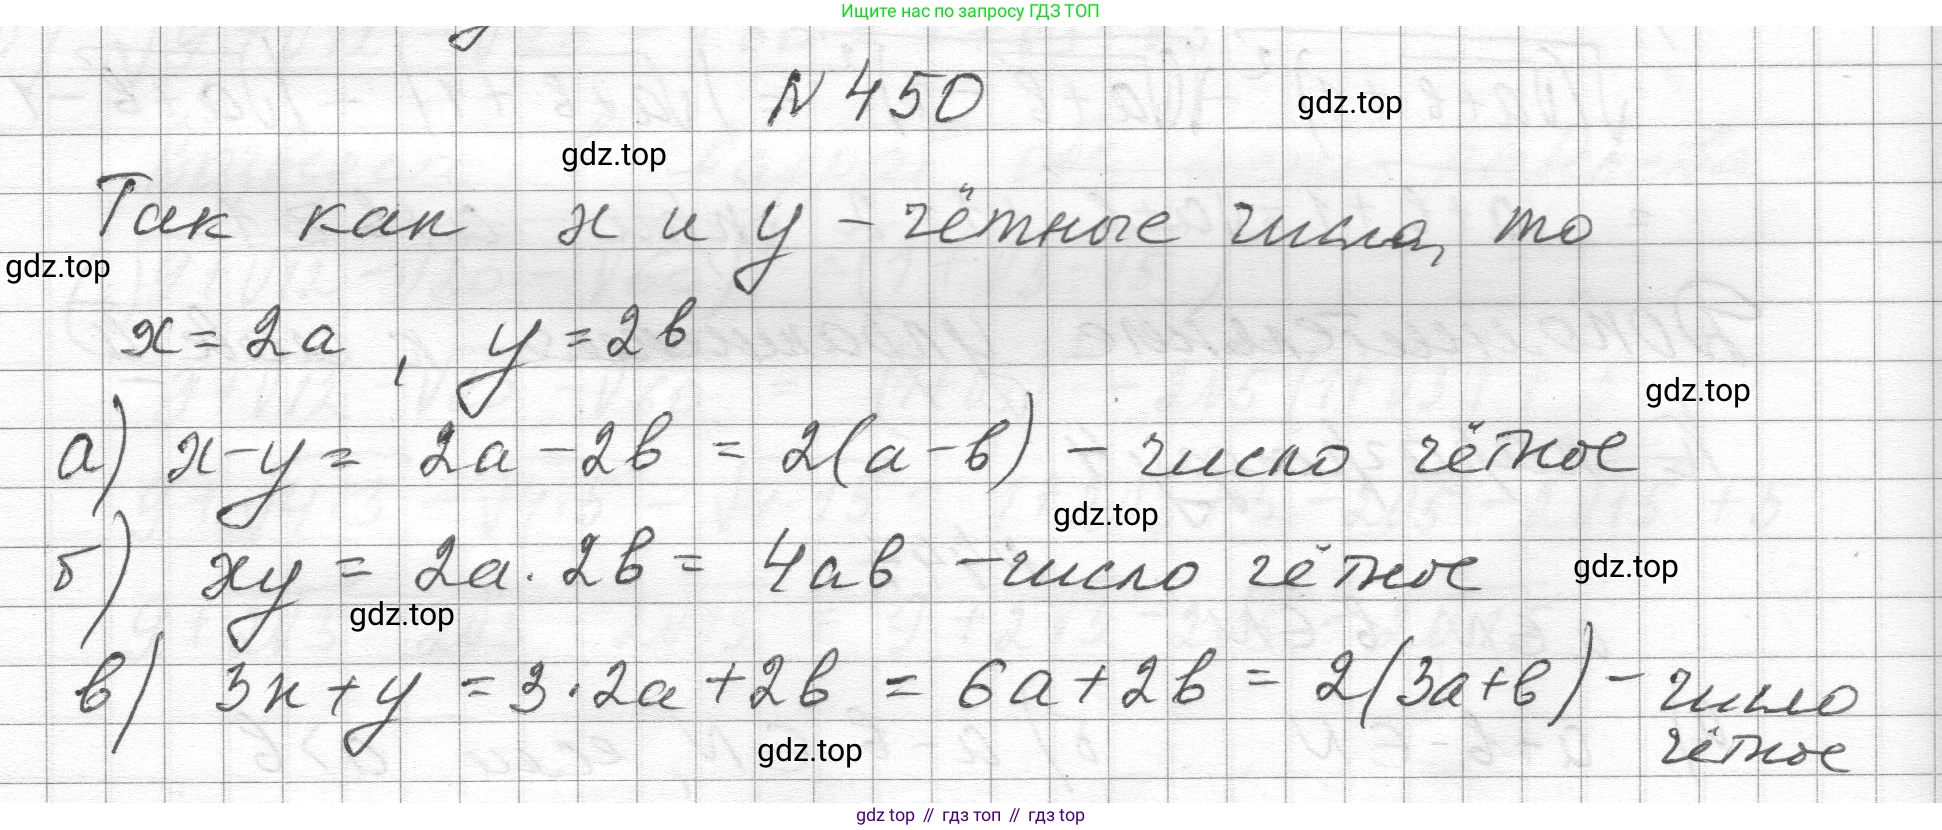 Ищите нас по запросу ГДЗ ТОП
N 450
gdz.top
gdz.top
Так как x и y – чётные числа, то
gdz.top
x = 2a , y = 2b
gdz.top
а) x-y = 2a - 2b = 2(a-b) – число чётное
gdz.top
б) xy = 2a · 2b = 4ab – число чётное
gdz.top
gdz.top
в) 3x+y = 3·2a+2b = 6a+2b = 2(3a+b) – число
чётное
gdz.top
gdz.top // гдз топ // гдз top